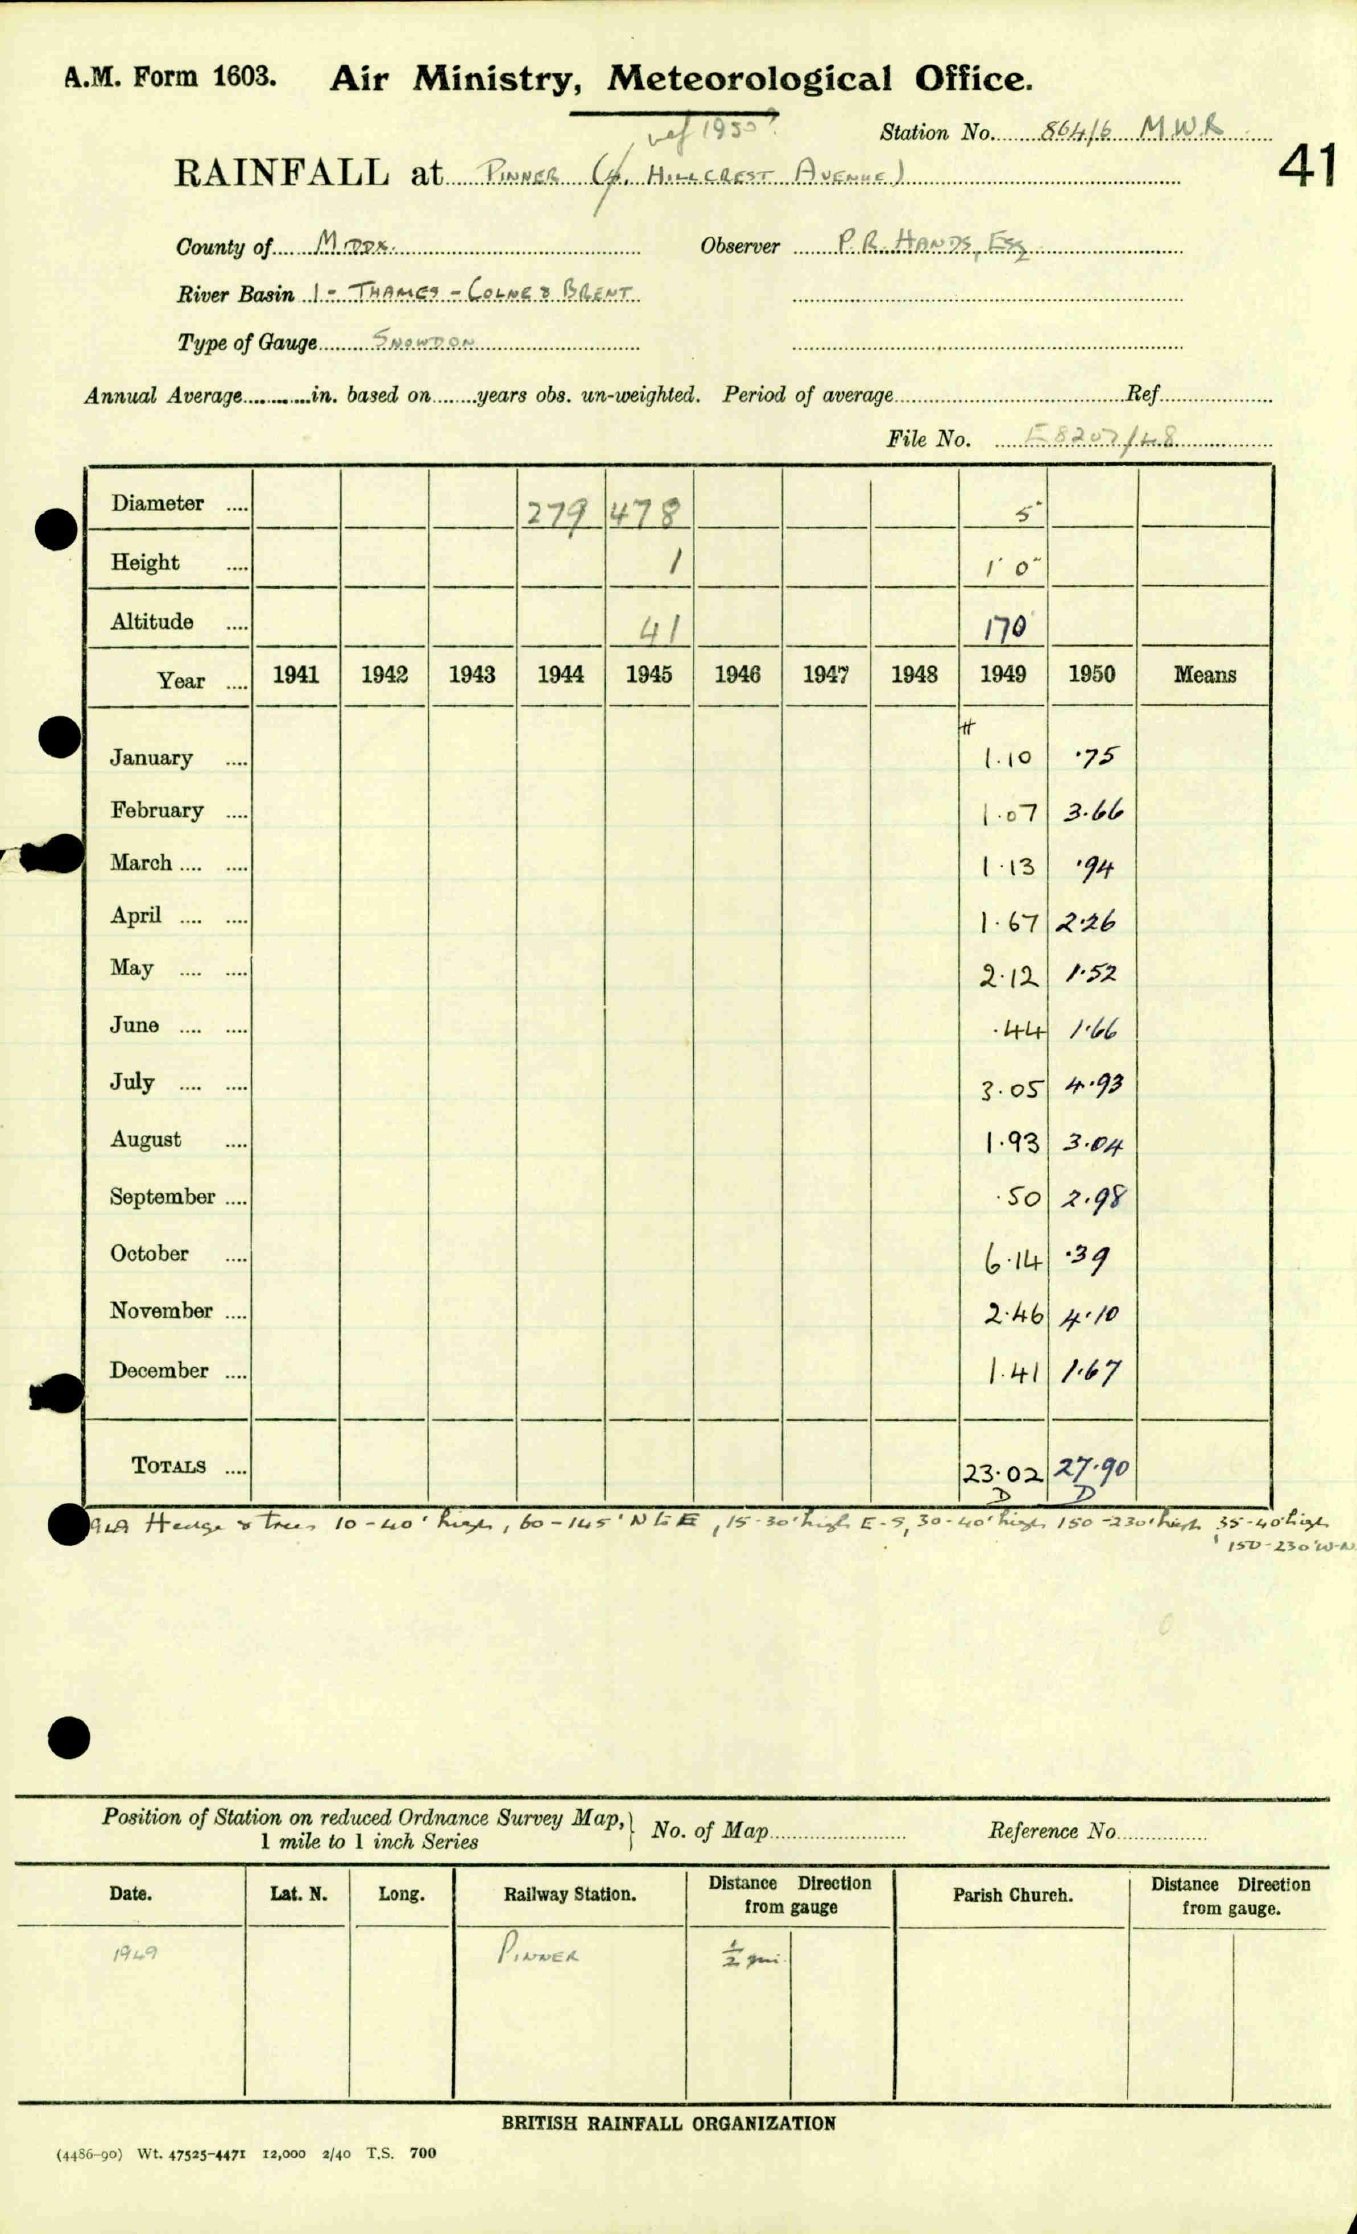 A.M. Form 1603. Air Ministry, Meteorological Office.
ref 1950?
Station No. 864/6 M.W.R
41
RAINFALL at PINNER (4, HILLCREST AVENUE)
County of MIDDX. Observer P.R. HANDS, ESQ
River Basin 1 - THAMES - COLNE & BRENT
Type of Gauge SNOWDON
Annual Average in. based on years obs. un-weighted. Period of average Ref
File No. E8207/48
Diameter .... 279 478 5"
Height .... 1 1' 0"
Altitude .... 41 170'
Year .... 1941 1942 1943 1944 1945 1946 1947 1948 1949 1950 Means
January .... # 1.10 .75
February .... 1.07 3.66
March .... .... 1.13 .94
April .... .... 1.67 2.26
May .... .... 2.12 1.52
June .... .... .44 1.66
July .... .... 3.05 4.93
August .... 1.93 3.04
September .... .50 2.98
October .... 6.14 .39
November .... 2.46 4.10
December .... 1.41 1.67
TOTALS .... 23.02 27.90
D D
949 Hedge & trees 10-40' high, 60-145' N to E, 15-30' high E-S, 30-40' high 150-230' high, 35-40' high
150-230' W-N
Position of Station on reduced Ordnance Survey Map, 1 mile to 1 inch Series No. of Map Reference No.
Date. Lat. N. Long. Railway Station. Distance Direction from gauge Parish Church. Distance Direction from gauge.
1949 PINNER ½ mi.
BRITISH RAINFALL ORGANIZATION
(4486-90) Wt. 47525-4471 12,000 2/40 T.S. 700